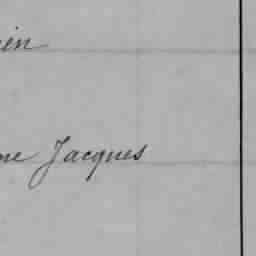 in
ne Jacques